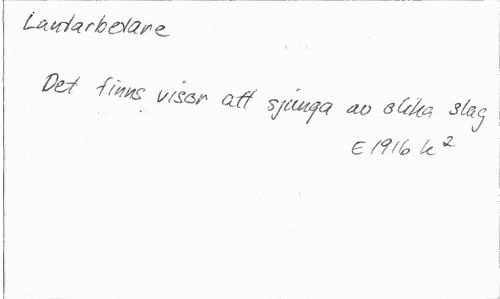 Lantarbetare
Det finns visor att sjunga av olika slag
E 1916 k²